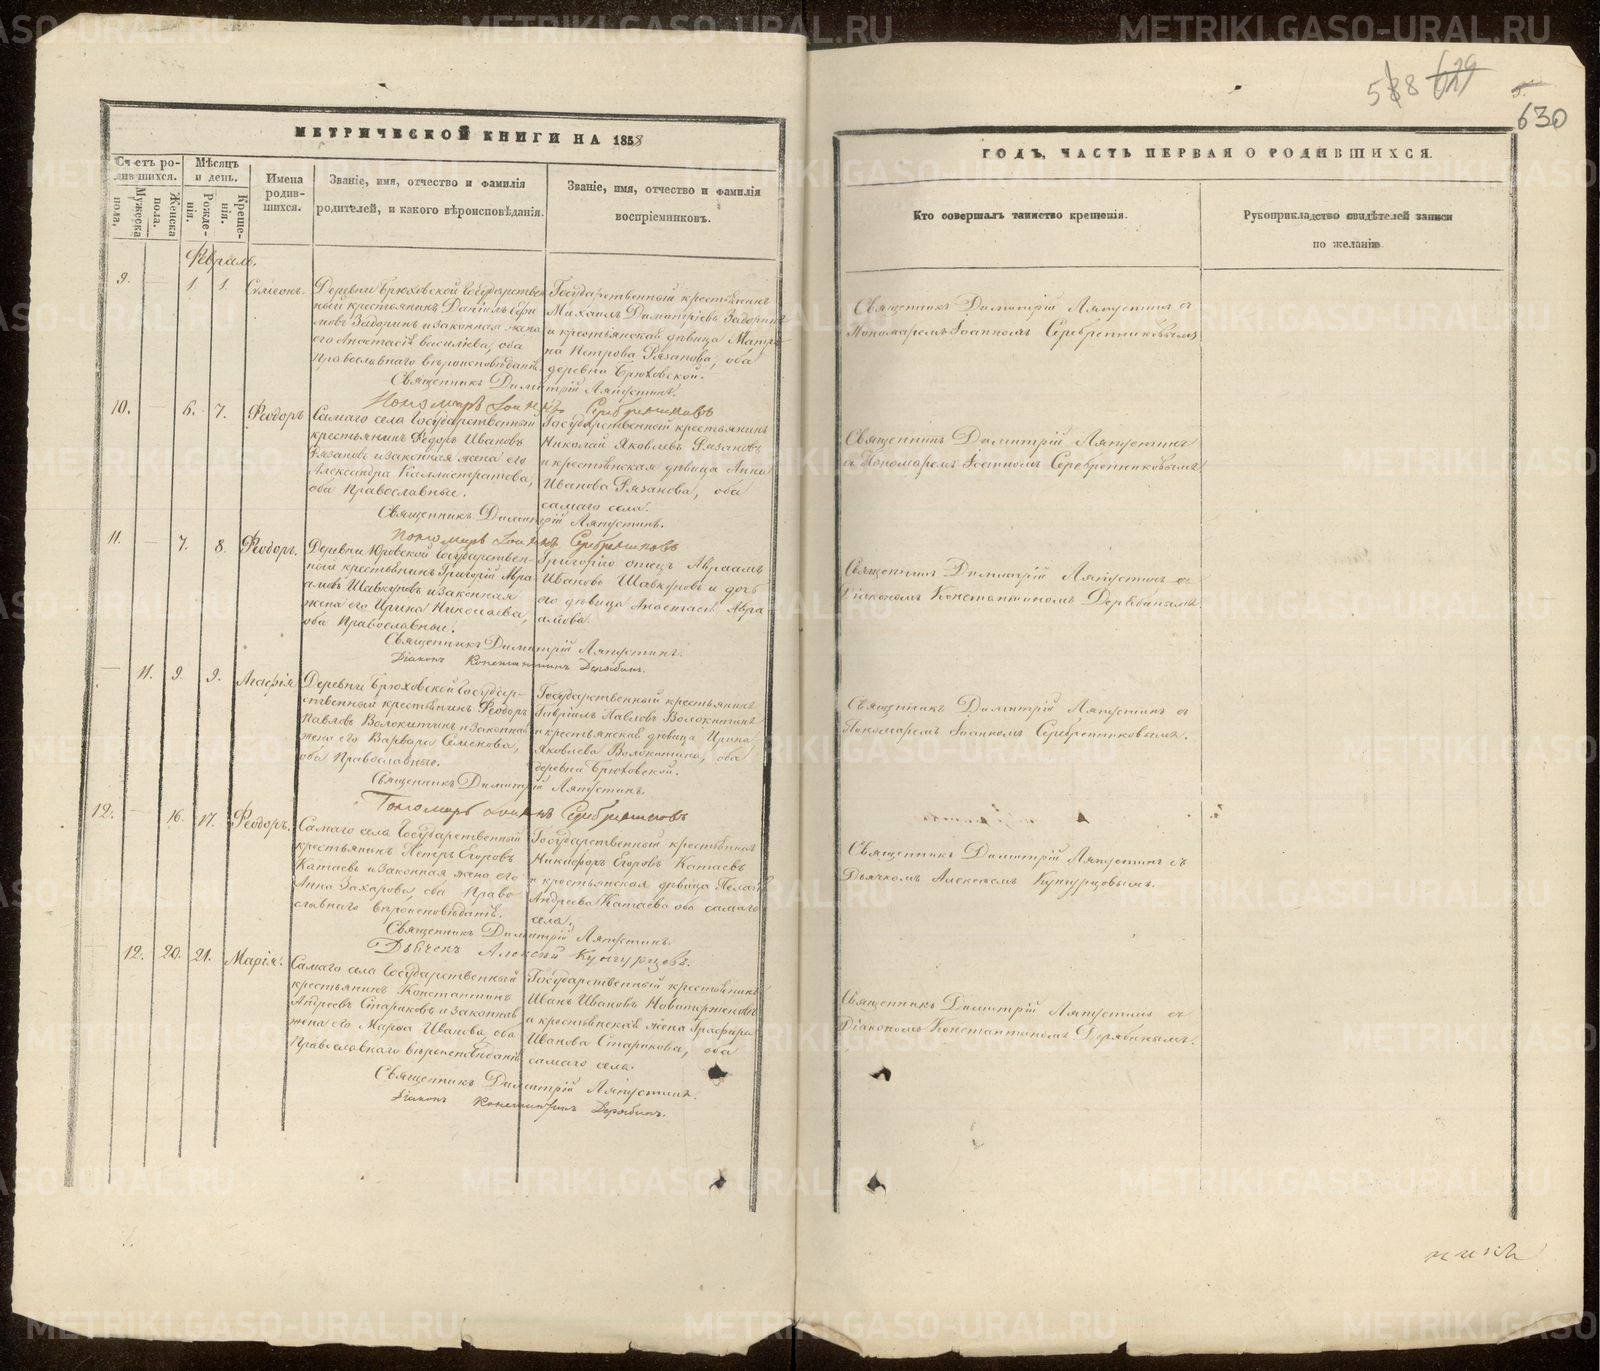 588 629
630
МЕТРИЧЕСКОЙ КНИГИ НА 1858
Счетъ ро-
дившихся.
Мѣсяцъ
и день.
Мужеска
пола.
Женска
пола.
Рожде-
нія.
Креще-
нія.
Имена
родив-
шихся.
Званіе, имя, отчество и фамилія
родителей, и какого вѣроисповѣданія.
Званіе, имя, отчество и фамилія
воспріемниковъ.
Февраль.
9. — 1. 1. Симеонъ.
Деревни Брюховской Государствен
ный крестьянинъ Даніилъ
Задоринъ и законная жена
его Анастасія Васильева, оба
Православнаго вѣроисповѣданія.
Государственный крестьянинъ
Михаилъ Димитріевъ Задоринъ
и крестьянская дѣвица Матре-
на Петрова Рязанова, оба
деревни Брюховской.
Священникъ Димитрій Ляпустинъ.
Пономарь Іоаннъ Серебренниковъ
10. — 6. 7. Феодоръ
Самаго села Государственный
крестьянинъ Федоръ Ивановъ
Рязановъ и законная жена его
Александра Каллистратова,
оба Православные.
Государственной крестьянинъ
Николай Яковлевъ Рязановъ
и крестьянская дѣвица Анна
Иванова Рязанова, оба
самаго села.
Священникъ Димитрій Ляпустинъ.
Пономарь Іоаннъ Серебренниковъ
11. — 7. 8. Феодоръ.
Деревни Юровской Государствен-
ной крестьянинъ Григорій Авра
амовъ Шавкуновъ и законная
жена его Ирина Николаева,
оба Православные.
Григорію отецъ Авраамъ
Ивановъ Шавкуновъ и дочь
его дѣвица Анастасія Авра
амова.
Священникъ Димитрій Ляпустинъ.
Діаконъ Константинъ Дерябинъ.
— 11. 9. 9. Агафія
Деревни Брюховской Государ-
ственный крестьянинъ Феодоръ
Павловъ Волокитинъ и законная
жена его Варвара Семенова,
оба Православные.
Государственный крестьянинъ
Гавріилъ Павловъ Волокитинъ
и крестьянская дѣвица Ирина
Яковлева Волокитина, оба
деревни Брюховской.
Священникъ Димитрій Ляпустинъ.
Пономарь Іоаннъ Серебренниковъ
12. — 16. 17. Феодоръ.
Самаго села Государственный
крестьянинъ Петръ Егоровъ
Катаевъ и законная жена его
Анна Захарова, оба Право
славнаго вѣроисповѣданія.
Государственной крестьянинъ
Никифоръ Егоровъ Катаевъ
и крестьянская дѣвица Пелагія
Андреева Катаева оба самаго
села.
Священникъ Димитрій Ляпустинъ.
Дьячекъ Алексѣй Кунгурцовъ.
12. 20. 21. Марія.
Самаго села Государственный
крестьянинъ Константинъ
Андреевъ Стариковъ и законная
жена его Марѳа Иванова, оба
Православнаго вѣроисповѣданія.
Государственный крестьянинъ
Иванъ Ивановъ Новиторженовъ
и крестьянская жена Глафира
Иванова Старикова, оба
самаго села.
Священникъ Димитрій Ляпустинъ.
Діаконъ Константинъ Дерябинъ.
ГОДЪ, ЧАСТЬ ПЕРВАЯ О РОДИВШИХСЯ.
Кто совершалъ таинство крещенія.
Рукоприкладство свидѣтелей записи
по желанію
Священникъ Димитрій Ляпустинъ с
Пономаремъ Іоанномъ Серебренниковымъ
Священникъ Димитрій Ляпустинъ
съ Пономаремъ Іоанномъ Серебренниковымъ
Священникъ Димитрій Ляпустинъ съ
Діакономъ Константиномъ Дерябинымъ.
Священникъ Димитрій Ляпустинъ с
Пономаремъ Іоанномъ Серебренниковымъ.
Священникъ Димитрій Ляпустинъ съ
Дьячкомъ Алексѣемъ Кунгурцовымъ.
Священникъ Димитрій Ляпустинъ съ
Діакономъ Константиномъ Дерябинымъ.
METRIKI.GASO-URAL.RU